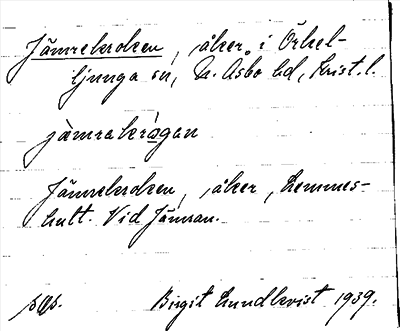 Jämrekroken, åker i Örkel-
ljunga sn, N. Åsbo hd, Krist. l.
jàmrakrågan
Jämrekroken, åker, Lemmes-
hult. Vid Jämran.
Birgit Lundkvist 1939.